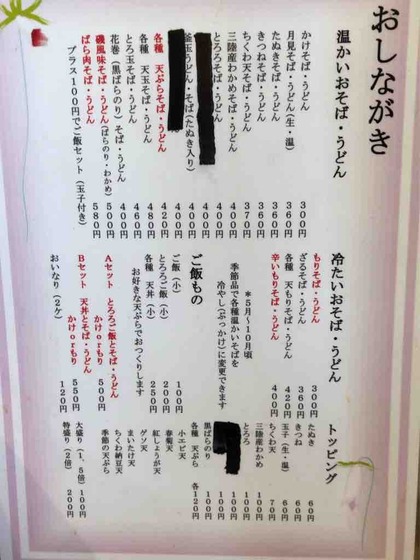 おしながき
温かいおそば・うどん
かけそば・うどん 300円
月見そば・うどん(生・温) 360円
たぬきそば・うどん 360円
きつねそば・うどん 360円
ちくわ天そば・うどん 370円
三陸産わかめそば・うどん 400円
とろろそば・うどん 400円
400円
釜玉うどん・そば(たぬき入り) 400円
各種 天ぷらそば・うどん 420円
各種 天玉そば・うどん 480円
とろ玉そば・うどん 460円
花巻(黒ばらのり)そば・うどん 400円
磯風味そば・うどん(ばらのり・わかめ) 500円
ばら肉そば・うどん 580円
プラス100円でご飯セット(玉子付き)
冷たいおそば・うどん
もりそば・うどん 300円
ざるそば・うどん 360円
各種 天もりそば・うどん 420円
辛いもりそば・うどん 400円
*5月~10月頃
季節品で各種温かいそばを
冷やし(ぶっかけ)に変更できます
ご飯もの
ご飯(小) 100円
とろろご飯(小) 200円
各種 天丼(小) 250円
お好きな天ぷらでおつくりします
Aセット とろろご飯とそば・うどん
かけorもり 500円
Bセット 天丼とそば・うどん
かけorもり 550円
おいなり(2ケ) 120円
トッピング
たぬき 60円
きつね 60円
玉子(生・温) 60円
ちくわ天 70円
三陸産わかめ 100円
とろろ 100円
100円
黒ばらのり 100円
各種 天ぷら 各120円
小エビ天
春菊天
紅しょうが天
ゲソ天
まいたけ天
ちくわ納豆天
季節の天ぷら
大盛り(1,5倍) 100円
特盛り(2倍) 200円